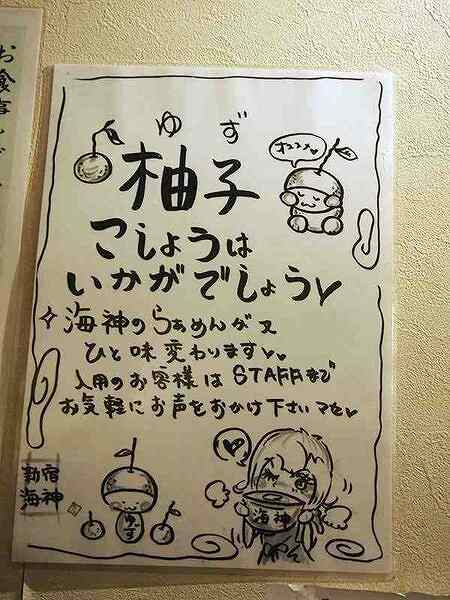 ゆず
オススメ
柚子
こしょうは
いかがでしょう♥
✧海神のらぁめんが又
ひと味変わります♥♥
入用のお客様はSTAFFまで
お気軽にお声をおかけ下さいマセ♥
新宿
海神
ゆず
海神
お食事